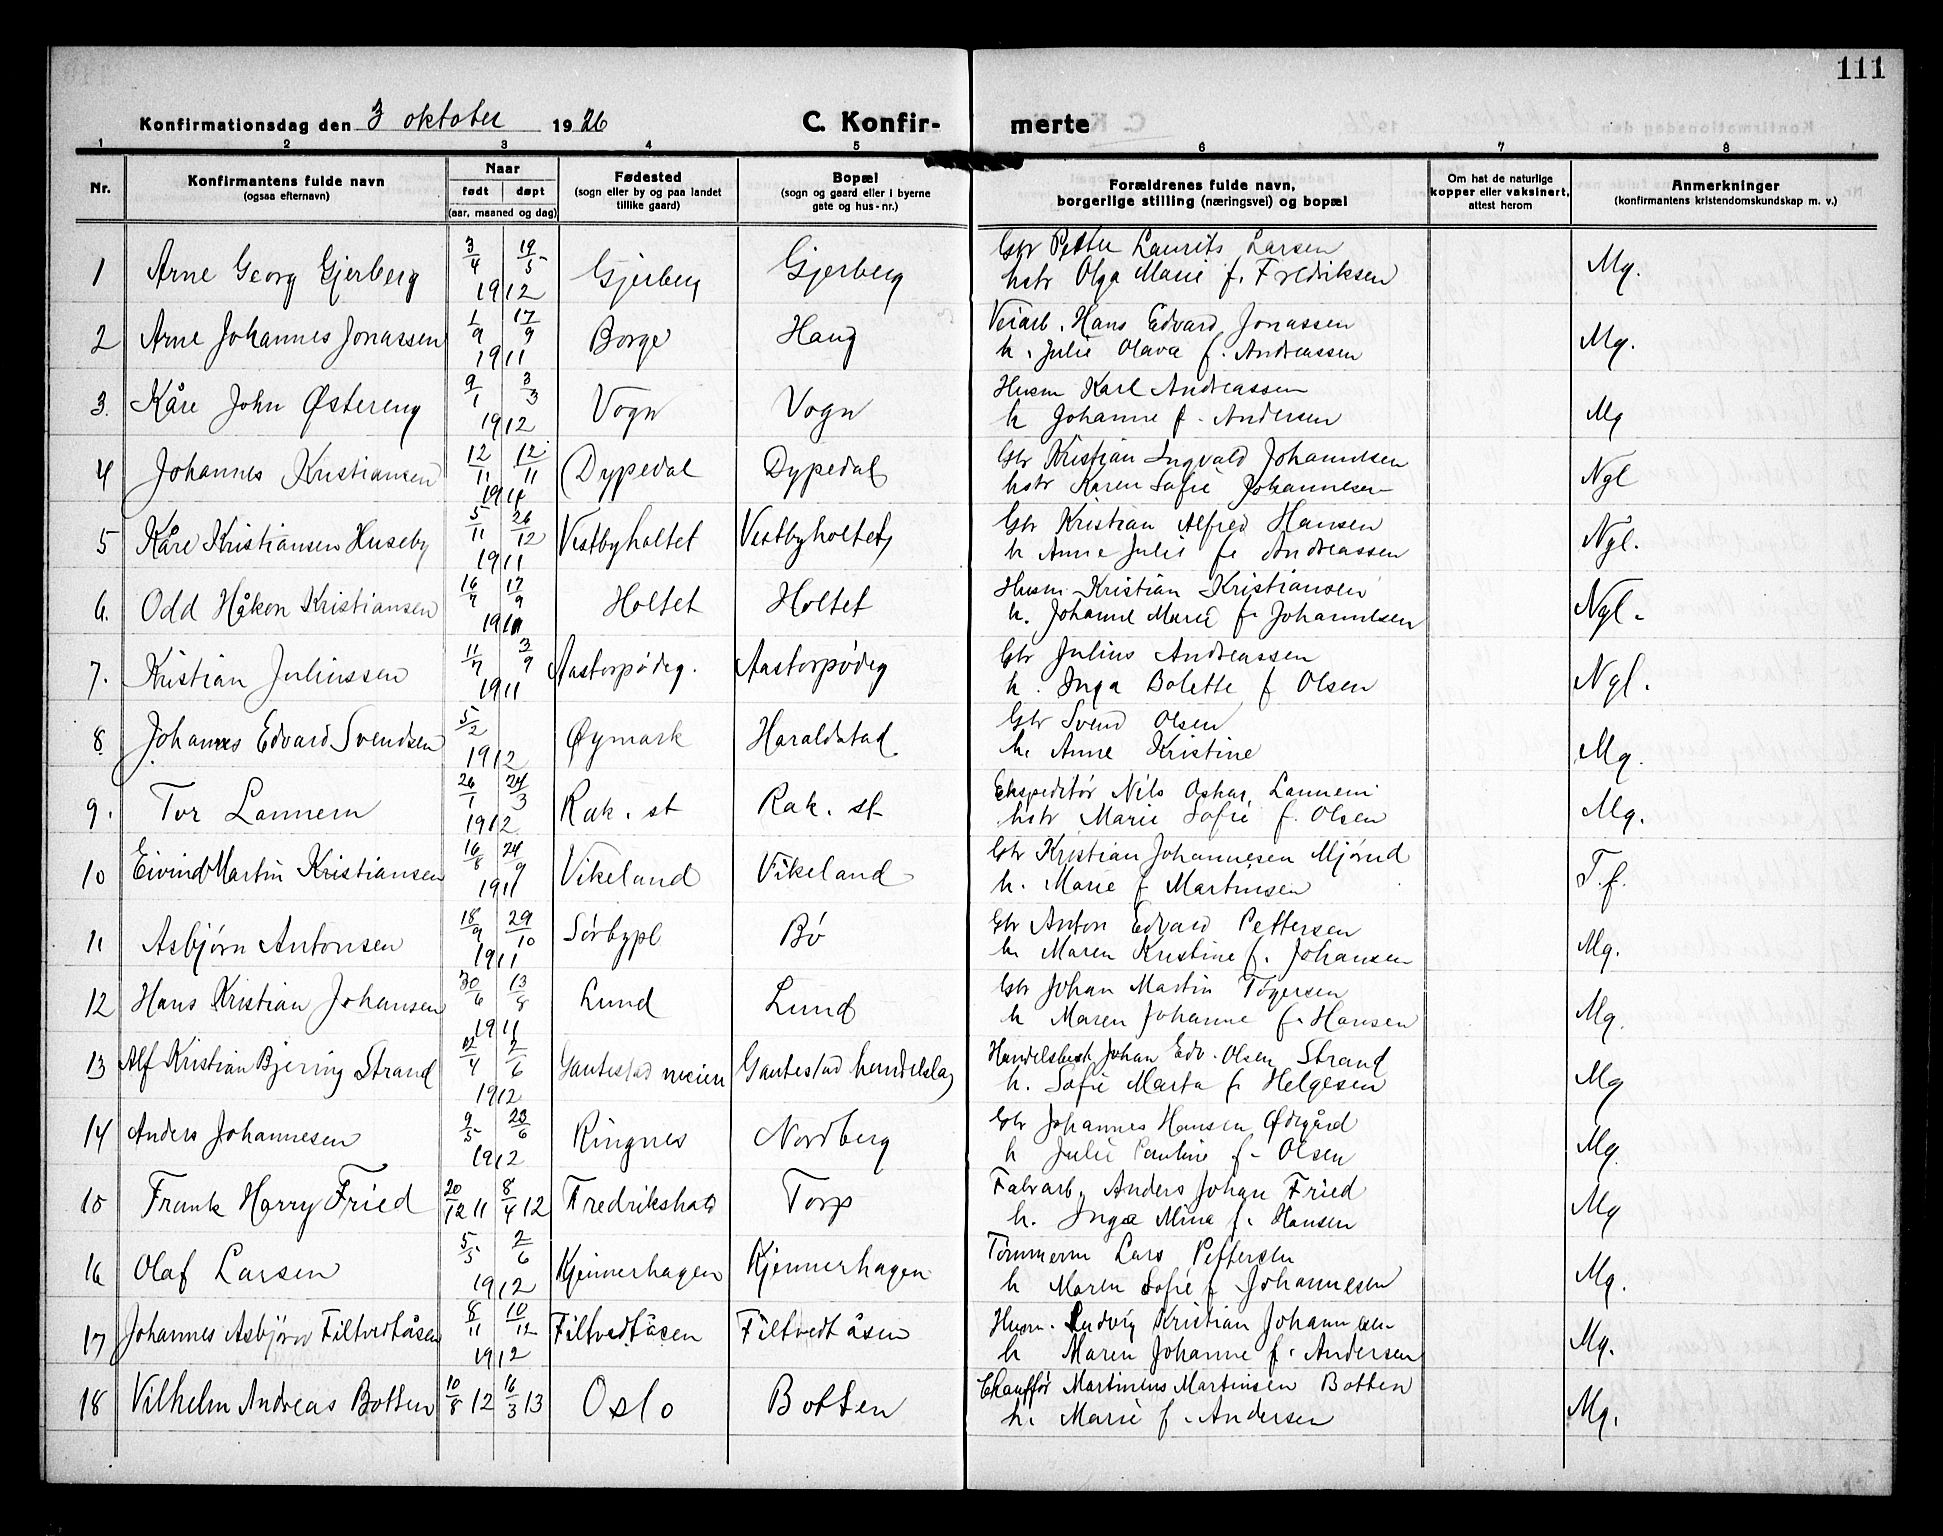 111
Konfirmationsdag den 3 oktober 1926 C. Konfir- merte
1 2 3 4 5 6 7 8
Nr.
Konfirmantens fulde navn
(ogsaa efternavn)
Naar
født døpt
(aar, maaned og dag)
Fødested
(sogn eller by og paa landet
tillike gaard)
Bopæl
(sogn og gaard eller i byerne
gate og hus-nr.)
Forældrenes fulde navn,
borgerlige stilling (næringsvei) og bopæl
Om hat de naturlige
kopper eller vaksinert,
attest herom
Anmerkninger
(konfirmantens kristendomskundskap m. v.)
1 Arne Georg Gjerberg 3/4 19/5 1912 Gjerberg Gjerberg Gbr Petter Laurits Larsen
hstr Olga Marie f. Fredriksen Mg.
2 Arne Johannes Jonassen 1/9 17/9 1911 Borge Haug Veiarb. Hans Edvard Jonassen
h. Julie Olava f. Andreassen Mg.
3. Kåre John Østereng 9/1 3/3 1912 Vogn Vogn Husm Karl Andreassen
h Johanne f. Andersen Mg
4 Johannes Kristiansen 12/11 12/11 1911 Dypedal Dypedal Gbr Kristian Ingvald Johannesen
hstr Karen Sofie Johannesen Ngl
5 Kåre Kristiansen Huseby 5/11 26/12 1911 Vestbyholtet Vestbyholtet Gbr Kristian Alfred Hansen
h Anne Julie f. Andreassen Ngl.
6. Odd Håkon Kristiansen 16/7 17/9 1911 Holtet Holtet Husm. Kristian Kristiansen
h. Johanne Marie f. Johannesen Ngl.
7. Kristian Juliussen 11/7 3/9 1911 Aastorpødeg. Aastorpødeg Gbr Julius Andreassen
h. Inga Bolette f Olsen Ngl.
8. Johannes Edvard Svendsen 5/2 1912 Øymark Haraldstad Gbr Svend Olsen
h. Anne Kristine Mg.
9. Tor Lannem 26/1 24/3 1912 Rak. st Rak. st Ekspeditør Nils Oskar Lannem
hstr Marie Sofie f. Olsen Mg.
10 Eivind Martin Kristiansen 16/8 24/9 1911 Vikeland Vikeland Gbr Kristian Johannesen Mjørud
h. Marie f Martinsen T.f.
11 Asbjørn Antonsen 18/9 29/10 1911 Sørbypl Bø Gbr Anton Edvard Pettersen
h. Maren Kristine f. Johansen Mg.
12 Hans Kristian Johansen 30/6 13/8 1911 Lund Lund Gbr Johan Martin Tøgersen
h Maren Johanne f. Hansen Mg.
13 Alf Kristian Bjering Strand 12/4 2/6 1912 Gautestad meieri Gautestad handelslag Handelsbest. Johan Edv. Olsen Strand
h. Sofie Marta f Helgesen Mg
14 Anders Johannesen 9/5 23/6 1912 Ringnes Nordberg Gbr Johannes Hansen Ødegård
h Julie Pauline f. Olsen Mg.
15 Frank Harry Fried 20/12 11 8/4 12 Fredrikshald Torp Fabrarb. Anders Johan Fried
h. Inga Mina f. Hansen Mg
16 Olaf Larsen 5/5 2/6 1912 Kjennerhagen Kjennerhagen Tømmerm Lars Pettersen
h Maren Sofie f Johannesen Mg.
17 Johannes Asbjørn Filtvedtåsen 8/11 10/12 1912 Filtvedtåsen Filtvedtåsen Husm. Ludvig Kristian Johannesen
h Maren Johanne f. Andersen Mg.
18 Vilhelm Andreas Botten 10/8 12 16/3 13 Oslo Botten Chauffør Martinius Martinsen Botten
h. Marie f. Andersen Mg.